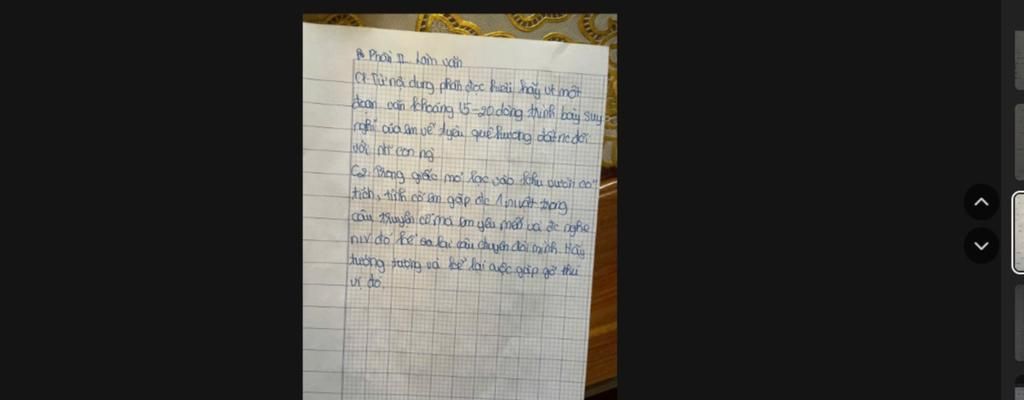 Phần II. Làm văn
C1. Từ nội dung phần đọc hiểu hãy vt một
đoạn văn khoảng 15-20 dòng trình bày suy
nghĩ của em về tyêu quê hương đất nc đối
với mỗi con ng
C2. Trong giấc mơ lạc vào khu vườn cổ
tích, tình cờ em gặp đc 1 nvật trong
câu truyện cổ mà em yêu mến và đc nghe
nv đó kể lại câu chuyện đời mình. Hãy
tưởng tượng và kể lại cuộc gặp gỡ thú
vị đó.